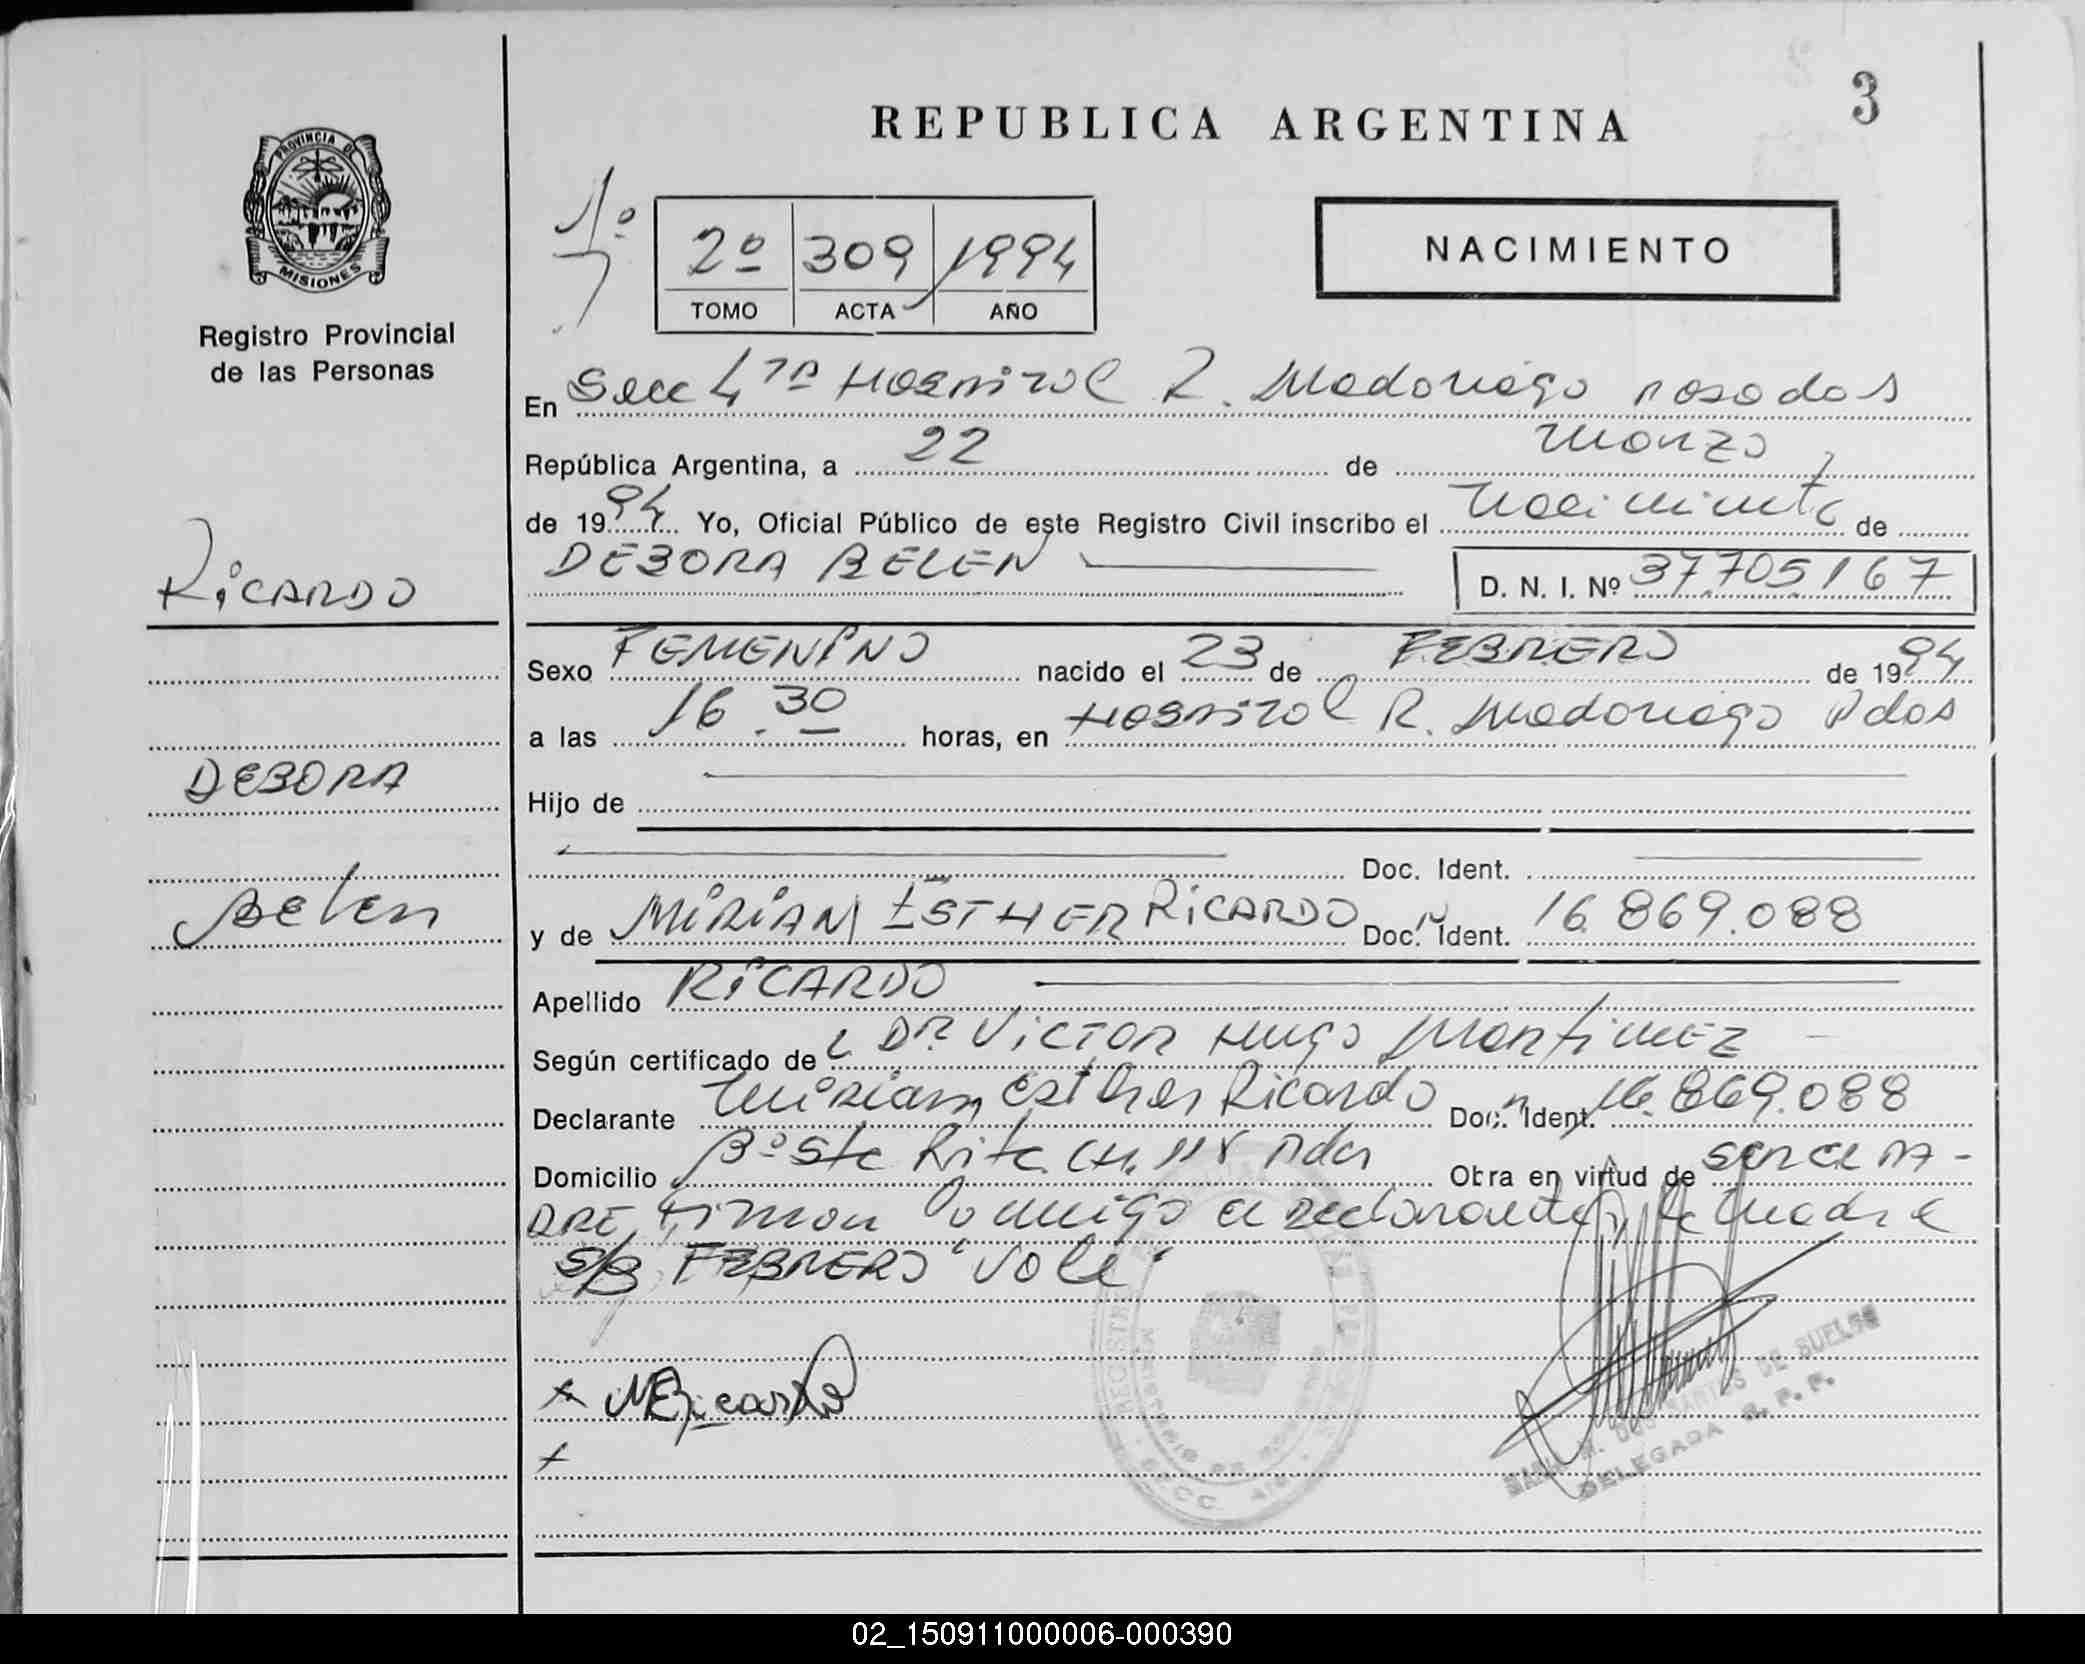 3
REPUBLICA ARGENTINA
PROVINCIA DE
MISIONES
Registro Provincial
de las Personas
2º 309 1994
TOMO ACTA AÑO
NACIMIENTO
En Secc 4ta Hospital R. Madariaga Posadas
República Argentina, a 22 de Marzo
de 1994 Yo, Oficial Público de este Registro Civil inscribo el Nacimiento de
DEBORA BELEN D. N. I. Nº 37705167
RICARDO
Sexo FEMENINO nacido el 23 de FEBRERO de 1994
a las 16.30 horas, en Hospital R. Madariaga Pdas
DEBORA
Hijo de
Doc. Ident.
Belen
y de MIRIAN ESTHER RICARDO Doc. Ident. 16.869.088
Apellido RICARDO
Según certificado de DR. VICTOR HUGO MARTINEZ
Declarante Mirian Esther Ricardo Doc. Ident. 16.869.088
Domicilio Bº Sta Rita CH. 118 Pdas Obra en virtud de SER LA MA-
DRE, Firman conmigo el declarante, la Madre
S/B FEBRERO "Vale"
x MERicardo
x
DOS SANTOS DE SUELDO
DELEGADA R. P. P.
02_150911000006-000390